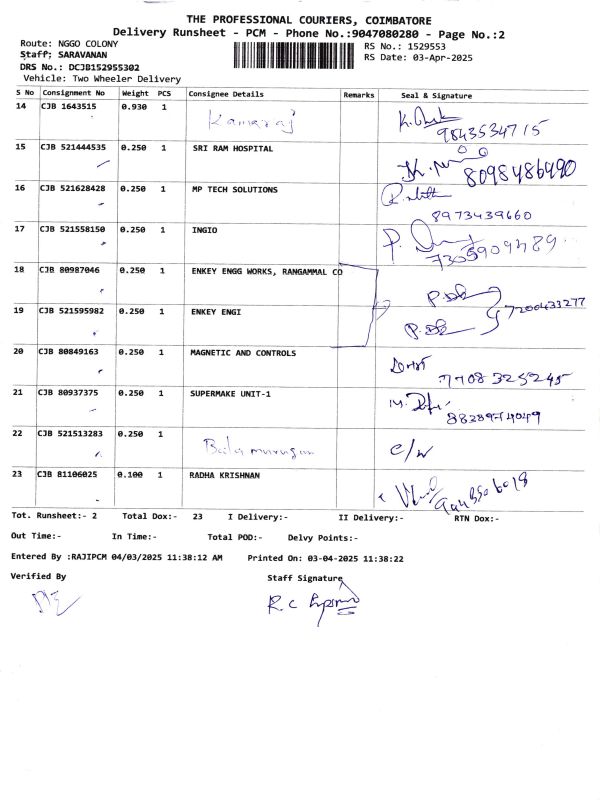 THE PROFESSIONAL COURIERS, COIMBATORE
Delivery Runsheet - PCM - Phone No.:9047080280 - Page No.:2
Route: NGGO COLONY
RS No.: 1529553
Staff: SARAVANAN
RS Date: 03-Apr-2025
DRS No.: DCJB152955302
Vehicle: Two Wheeler Delivery
S No Consignment No Weight PCS Consignee Details Remarks Seal & Signature
14 CJB 1643515 0.930 1 Kamaraj
9843534715
15 CJB 521444535 0.250 1 SRI RAM HOSPITAL
8098486490
16 CJB 521628428 0.250 1 MP TECH SOLUTIONS
8973439660
17 CJB 521558150 0.250 1 INGIO
7305909489
18 CJB 80987046 0.250 1 ENKEY ENGG WORKS, RANGAMMAL CO
7200433277
19 CJB 521595982 0.250 1 ENKEY ENGI
20 CJB 80849163 0.250 1 MAGNETIC AND CONTROLS
7708325245
21 CJB 80937375 0.250 1 SUPERMAKE UNIT-1
8838974049
22 CJB 521513283 0.250 1 Bala murugan c/w
23 CJB 81106025 0.100 1 RADHA KRISHNAN
Tot. Runsheet:- 2 Total Dox:- 23 I Delivery:- II Delivery:- RTN Dox:-
Out Time:- In Time:- Total POD:- Delvy Points:-
Entered By :RAJIPCM 04/03/2025 11:38:12 AM Printed On: 03-04-2025 11:38:22
Verified By Staff Signature